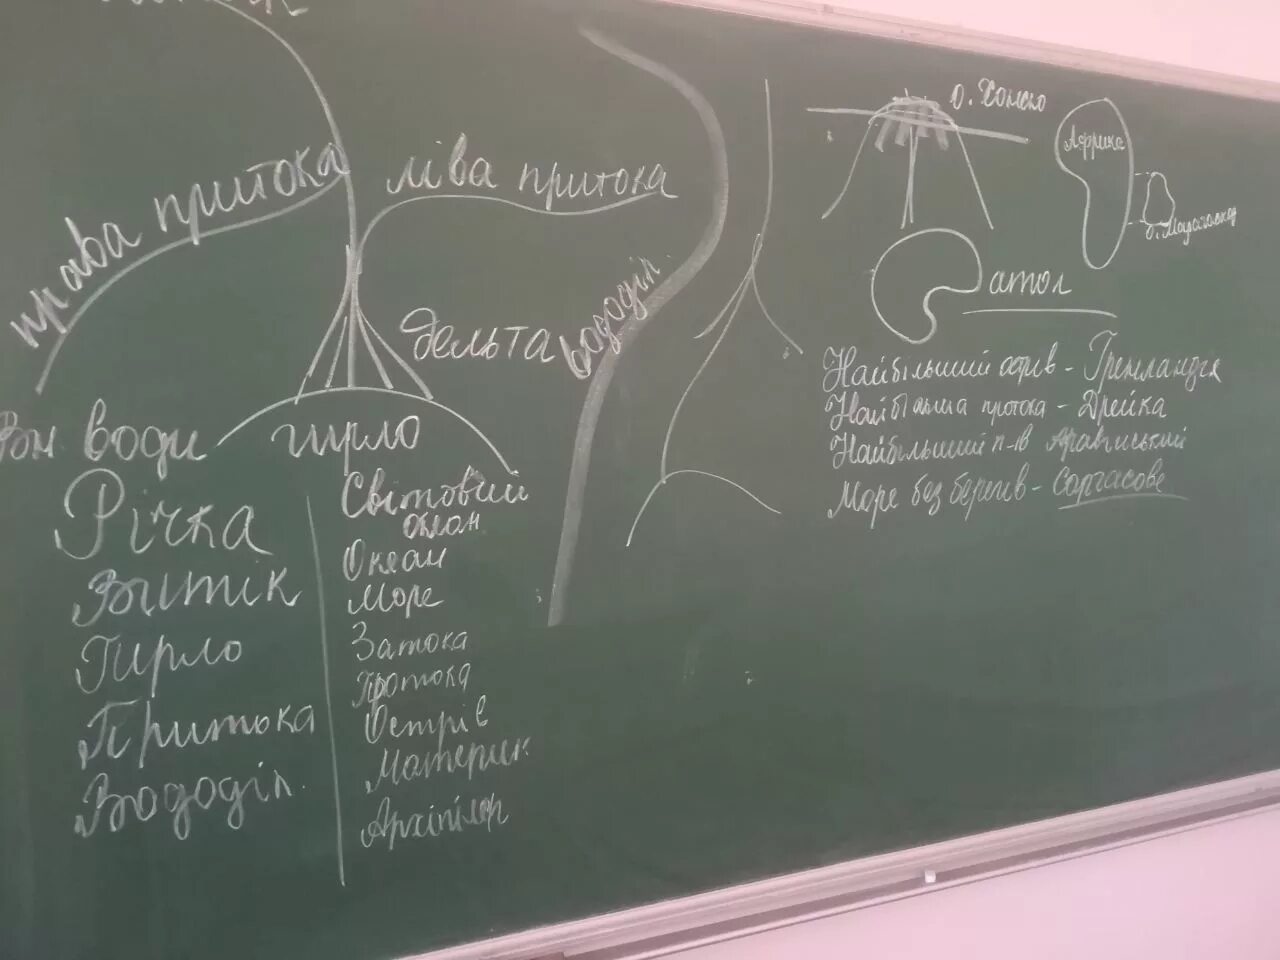 права притока
ліва притока
дельта
вододіл.
води гирло
Річка
Витік
Гирло
Притока
Вододіл.
Світовий
океан
Океан
Море
Затока
Протока
Острів
Материк
Архіпелаг
Африка
о. Мадагаскар
атол
Найбільший острів - Гренландія
Найбільша протока - Дрейка
Найбільший п-ів Аравійський
Море без берегів - Саргасове